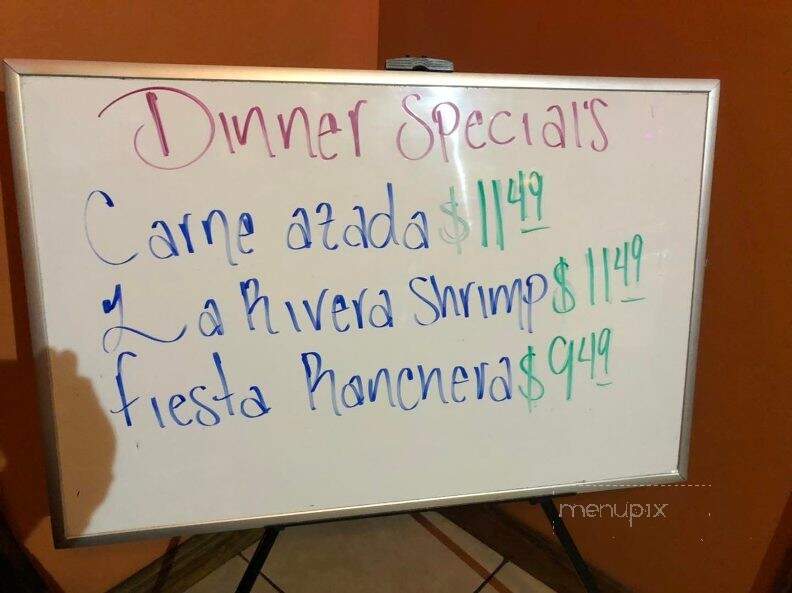 Dinner Special's
Carne azada $11.49
La Rivera Shrimp $11.49
fiesta Ranchera $9.49
menupix